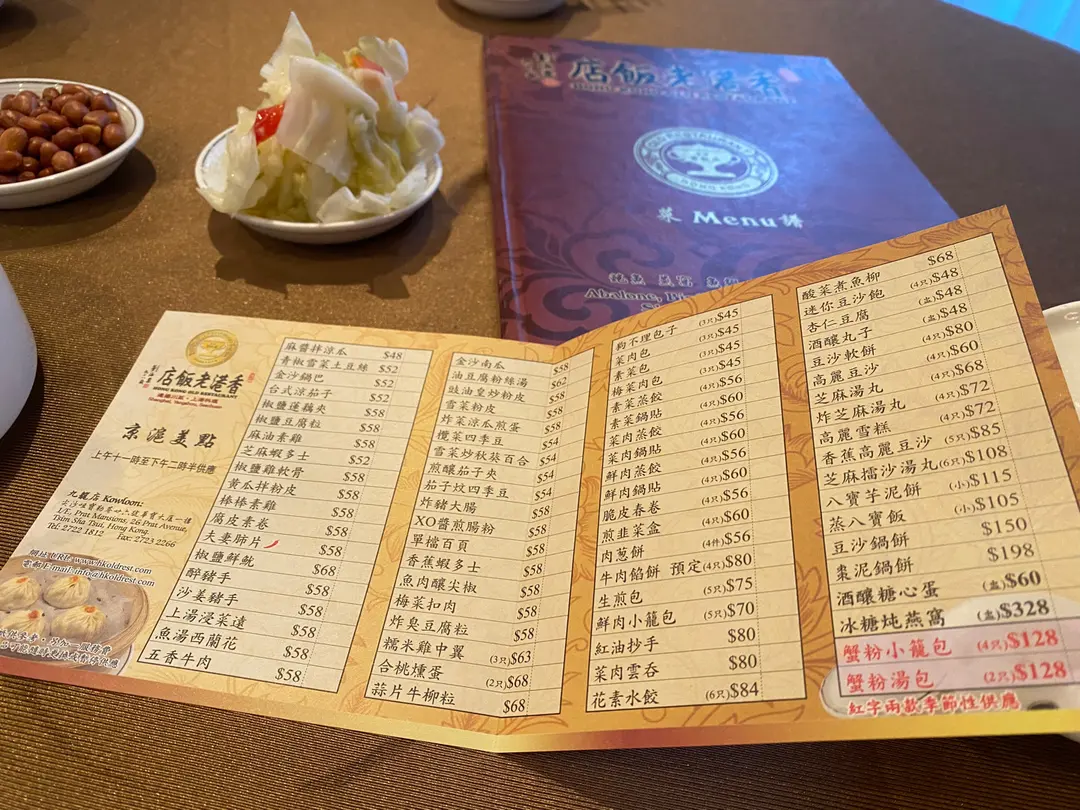 店飯老港香
HONG KONG OLD RESTAURANT
OLD RESTAURANT
HONG KONG
菜 Menu 譜
店飯老港香
HONG KONG OLD RESTAURANT
京滬美點
上午十一時至下午二時半供應
九龍店 Kowloon:
1/F., Prat Mansions, 26 Prat Avenue,
Tsim Sha Tsui, Hong Kong.
Tel: 2722 1812 Fax: 2723 2266
網址 URL: www.hkoldrest.com
電郵 E-mail: info@hkoldrest.com
麻醬拌涼瓜 $48
青椒雪菜土豆絲 $52
金沙鍋巴 $52
台式涼茄子 $52
椒鹽蓮藕夾 $58
椒鹽豆腐粒 $58
麻油素雞 $58
芝麻蝦多士 $52
椒鹽雞軟骨 $58
黃瓜拌粉皮 $58
棒棒素雞 $58
腐皮素卷 $58
夫妻肺片 $58
椒鹽鮮魷 $68
醉豬手 $58
沙姜豬手 $58
上湯浸菜遠 $58
魚湯西蘭花 $58
五香牛肉 $58
金沙南瓜 $58
油豆腐粉絲湯 $62
豉油皇炒粉皮 $58
雪菜粉皮 $58
炸菜涼瓜煎蛋 $58
欖菜四季豆 $54
雪菜炒秋葵百合 $54
煎釀茄子夾 $54
茄子炆四季豆 $54
炸豬大腸 $58
XO醬煎腸粉 $58
單檔百頁 $58
香蕉蝦多士 $58
魚肉釀尖椒 $58
梅菜扣肉 $58
炸臭豆腐粒 $58
糯米雞中翼 (3只)$63
合桃燻蛋 (2只)$68
蒜片牛柳粒 $68
狗不理包子 (3只)$45
菜肉包 (3只)$45
素菜包 (3只)$45
梅菜肉包 (3只)$45
素菜蒸餃 (4只)$56
素菜鍋貼 (4只)$60
菜肉蒸餃 (4只)$56
菜肉鍋貼 (4只)$60
鮮肉蒸餃 (4只)$56
鮮肉鍋貼 (4只)$60
脆皮春卷 (4只)$56
煎韭菜盒 (4只)$60
肉蔥餅 (4件)$56
牛肉餡餅 預定(4只)$80
生煎包 (5只)$75
鮮肉小籠包 (5只)$70
紅油抄手 $80
菜肉雲吞 $80
花素水餃 (6只)$84
酸菜煮魚柳 $68
迷你豆沙飽 (4只)$48
杏仁豆腐 (盅)$48
酒釀丸子 (盅)$48
豆沙軟餅 (4只)$80
高麗豆沙 (4只)$60
芝麻湯丸 (4只)$68
炸芝麻湯丸 (4只)$72
高麗雪糕 (4只)$72
香蕉高麗豆沙 (5只)$85
芝麻擂沙湯丸 (6只)$108
八寶芋泥餅 (小)$115
蒸八寶飯 (小)$105
豆沙鍋餅 $150
棗泥鍋餅 $198
酒釀糖心蛋 (盅)$60
冰糖炖燕窩 (盅)$328
蟹粉小籠包 (4只)$128
蟹粉湯包 (2只)$128
紅字兩款季節性供應